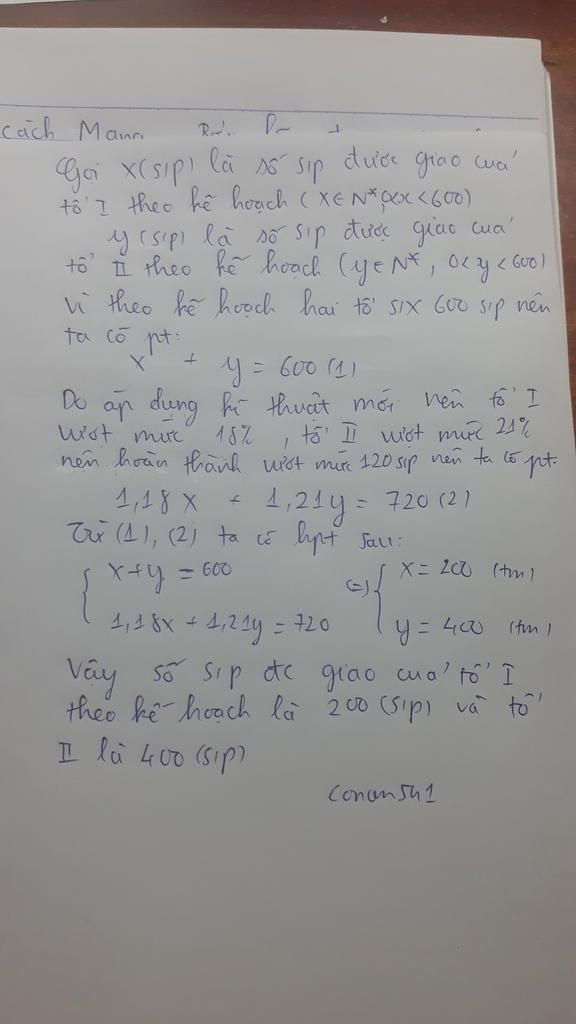 cách Mạn
Gọi x(sip) là số sip được giao của
tổ I theo kế hoạch (x∈N*,0<x<600)
y(sip) là số sip được giao của
tổ II theo kế hoạch (y∈N*, 0<y<600)
Vì theo kế hoạch hai tổ six 600 sip nên
ta có pt:
x + y = 600 (1)
Do áp dụng kĩ thuật mới nên tổ I
vượt mức 18%, tổ II vượt mức 21%
nên hoàn thành vượt mức 120 sip nên ta có pt.
1,18x + 1,21y = 720 (2)
Từ (1), (2) ta có hpt sau:
{ x+y = 600 (=) { x = 200 (tm)
1,18x + 1,21y = 720 y = 400 (tm)
Vậy số sip đc giao của tổ I
theo kế hoạch là 200 (sip) và tổ
II là 400 (sip)
conan541